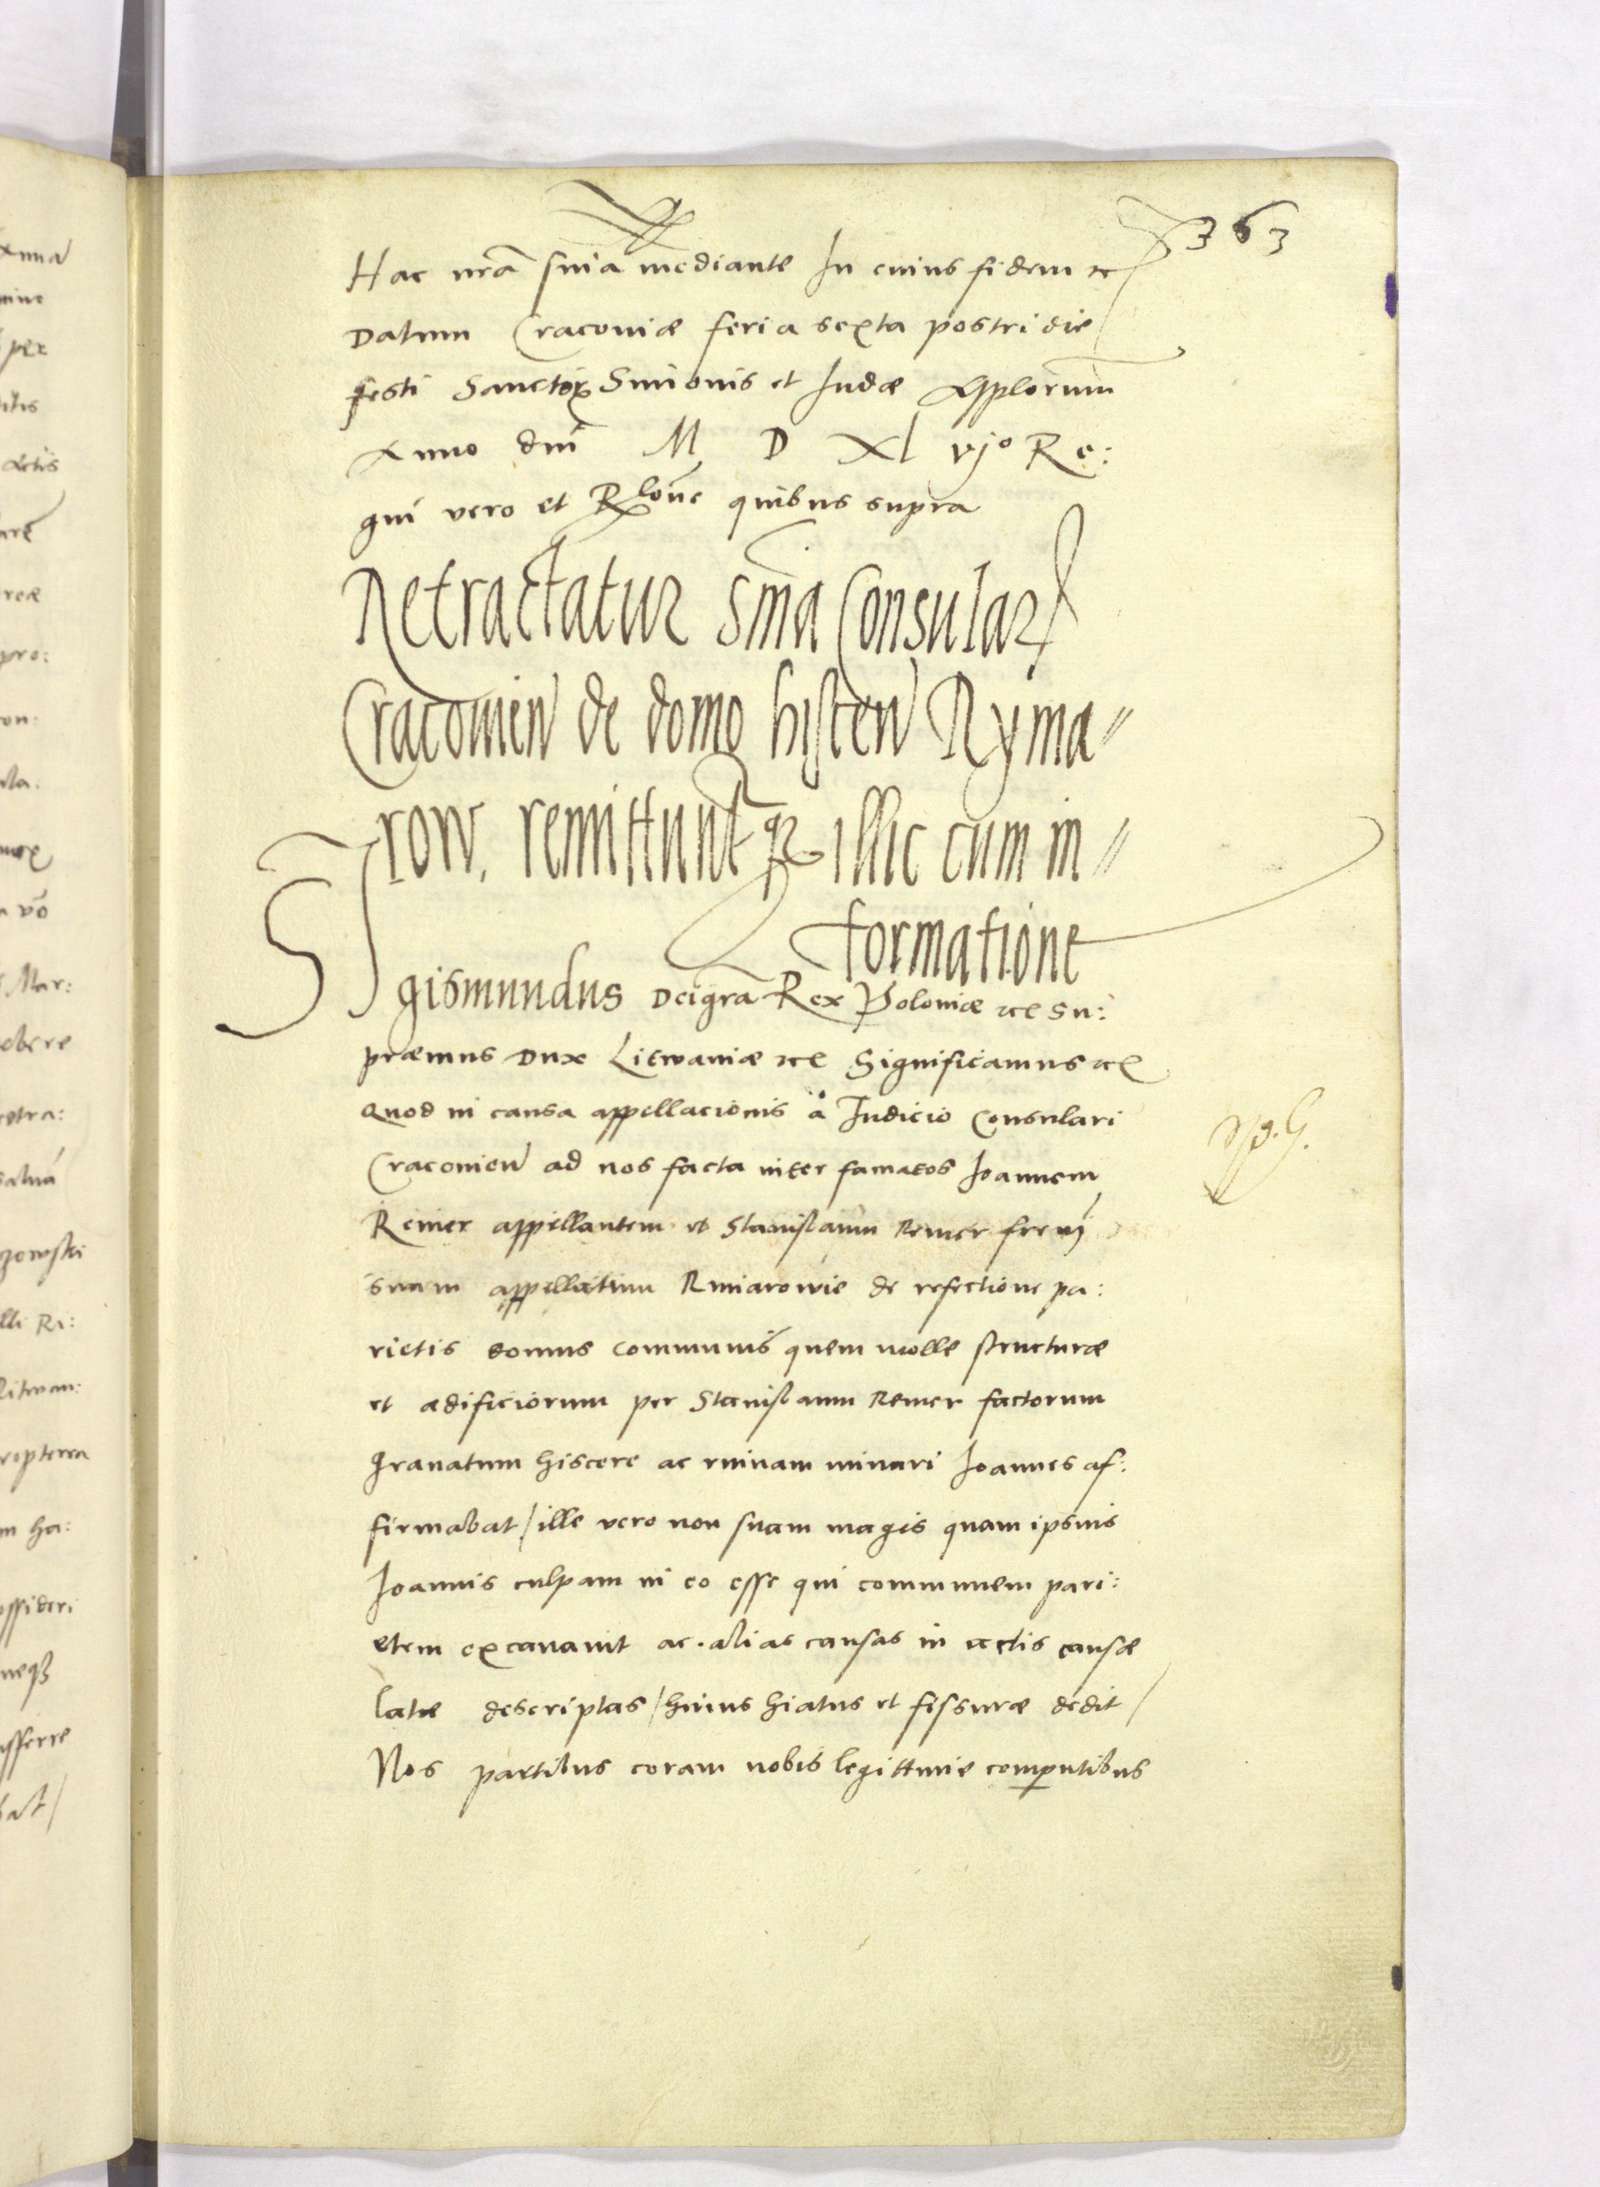 363
Hac nrã snia mediante In cuius fidem ꝛc
Datum Cracoviæ feria sexta postridie
festi Sanctoꝝ Simonis et Iudæ Aplorum
Anno dni M D Xl vjº Re:
gni vero et quibus supra
Retractatur snia Consular
Cracovien de domo hiscen Ryma〃
row, remittuntqꝫ illic cum in〃
formatione
SIgismundus Dei gra Rex Poloniæ ꝛc Su:
præmus Dux Litwaniæ ꝛc Significamus ꝛc
Quod in causa appellacionis à Iudicio Consulari
Cracovien ad nos facta inter famatos Ioannem
Remer appellantem et Stanislaum Remer frem
suum appellatum Rimarowie de refectione pa:
rietis domus communis quem molle structuræ
et ædificiorum per Stanislaum Remer factorum
gravatum hiscere ac ruinam minari Ioannes af:
firmabat / ille vero non suam magis quam ipsius
Ioannis culpam in eo esse qui communem pari:
etem excavavit ac alias causas in actis causæ
latæ descriptas / huius hiatus et fissuræ dedit /
Nos partibus coram nobis legittime comparentibus